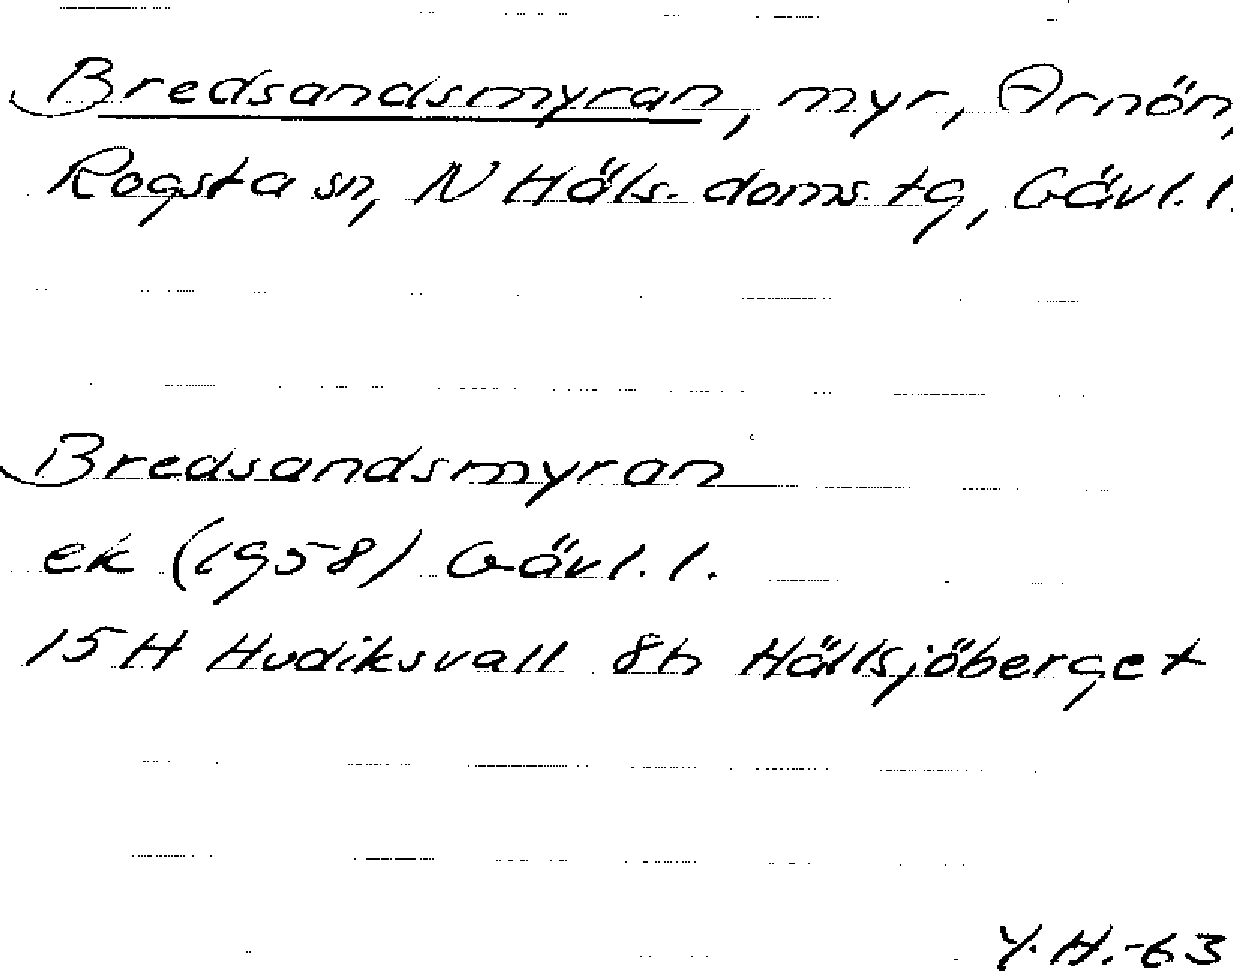 Bredsandsmyran, myr, Arnön,
Rogsta sn, N Häls. doms. tg, Gävl. l.
Bredsandsmyran
ek (1958) Gävl. l.
15H Hudiksvall 8h Hällsjöberget
Y.H.-63